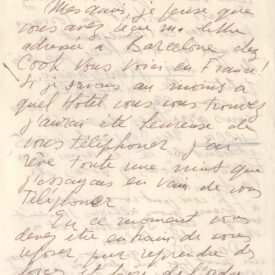 Mes amis, je pense que
vous avez reçu ma lettre
adressée à Barcelone chez
Cook Vous voici en France!
Si je savais au moins à
quel Hotel vous vous trouvez
j'aurais été heureuse de
vous téléphoner j'ai
rêvé toute une nuit que
j'essayais en vain de vous
téléphoner
En ce moment vous
devez être en train de vous
reposer, pour reprendre des
forces